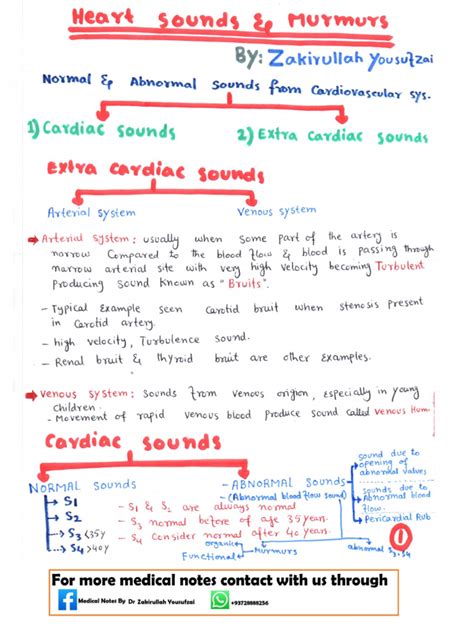 Heart Sounds & Murmurs
By: Zakirullah Yousufzai
Normal & Abnormal Sounds from Cardiovascular sys.
1) Cardiac Sounds
2) Extra Cardiac Sounds
Extra Cardiac Sounds
Arterial System
Venous System
Arterial System: usually when some part of the artery is
narrow Compared to the blood flow & blood is passing through
narrow arterial site with very high velocity becoming Turbulent
Producing sound known as "Bruits".
- Typical Example seen Carotid bruit when stenosis present
in Carotid artery.
- high velocity, Turbulence sound.
- Renal bruit & thyroid bruit are other examples.
Venous System: Sounds from Venous origion, especially in young
children.
- Movement of rapid venous blood produce sound called Venous Hum.
Cardiac Sounds
NORMAL Sounds
S1
S2
S3 <35y
S4 >40y
- S1 & S2 are always normal
- S3 normal before of age 35 years.
- S4 Consider normal after 40 years.
- ABNORMAL Sounds
- (Abnormal blood flow sound)
sound due to
opening of
abnormal valves
sounds due to
Abnormal blood
flow
Pericardial Rub
abnormal S3+S4
organic
Functional
Murmurs
1
For more medical notes contact with us through
Medical Notes By Dr Zakirullah Yousufzai
+93728888256